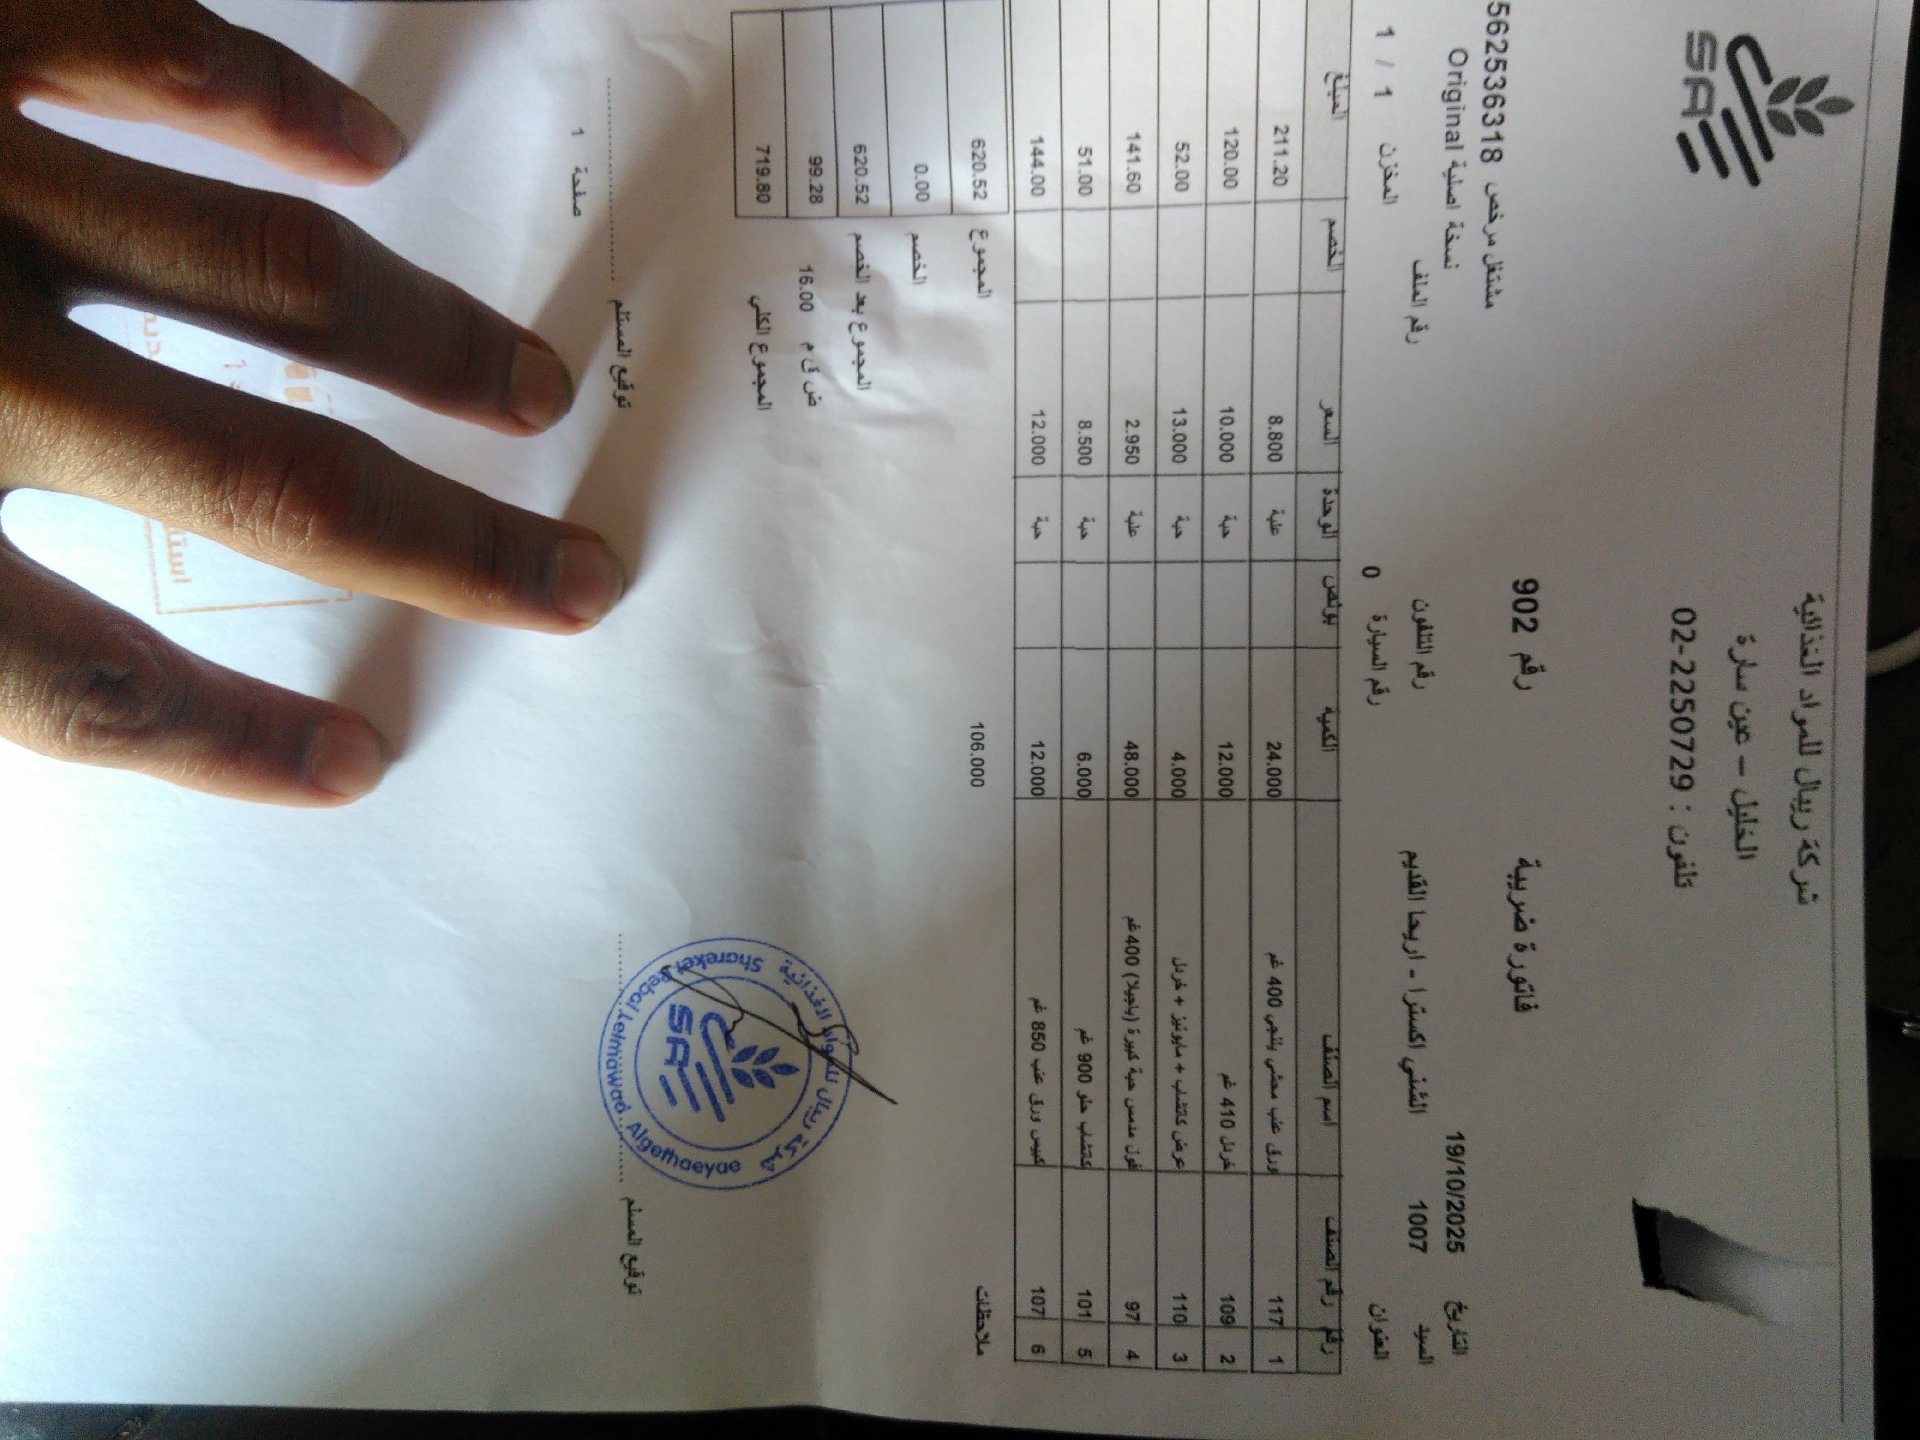 شركة ريبال للمواد الغذائية
الخليل - عين سارة
تلفون : 02-2250729
SA
فاتورة ضريبية رقم 902 مشتغل مرخص 562536318
التاريخ 19/10/2025 نسخة اصلية Original
السيد 1007 الشني اكسترا - اريحا القديم رقم التلفون رقم الملف
العنوان رقم السيارة 0 المخزن 1 / 1
رقم رقم الصنف اسم الصنف الكمية بونص الوحدة السعر الخصم المبلغ
1 117 ورق عنب محشي يلنجي 400 غم 24.000 علبة 8.800 211.20
2 109 خردل 410 غم 12.000 حبة 10.000 120.00
3 110 عرض كاتشاب + مايونيز + خردل 4.000 حبة 13.000 52.00
4 97 فول مدمس حبة كبيرة (باجيلا) 400 غم 48.000 علبة 2.950 141.60
5 101 كاتشاب حلو 900 غم 6.000 حبة 8.500 51.00
6 107 كبيس ورق عنب 850 غم 12.000 حبة 12.000 144.00
ملاحظات 106.000 المجموع 620.52
الخصم 0.00
المجموع بعد الخصم 620.52
ض ق م 16.00 99.28
المجموع الكلي 719.80
توقيع المسلم توقيع المستلم
شركة ريبال للمواد الغذائية
SA
Shareket Rebal Lelmawad Algethaeyae
صفحة 1